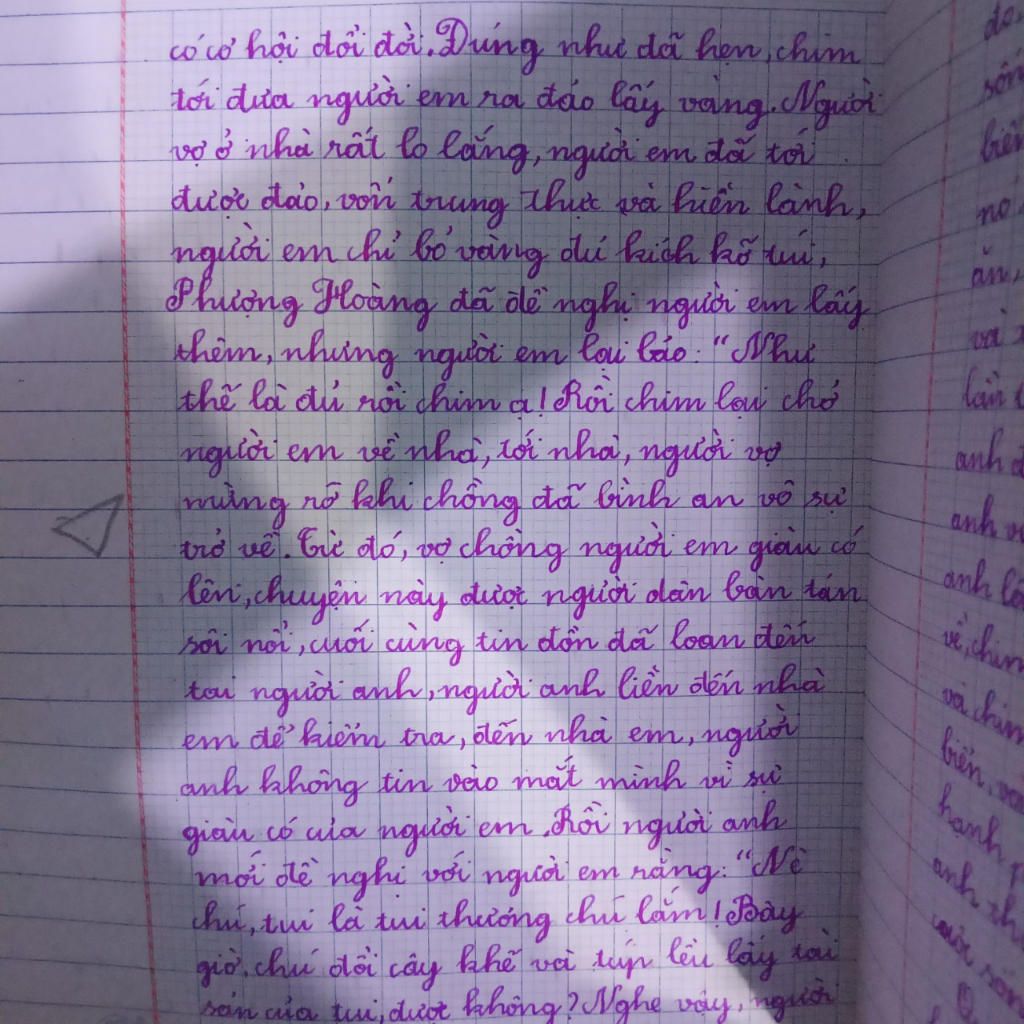 có cơ hội đổi đời. Đúng như đã hẹn, chim
tới đưa người em ra đảo lấy vàng. Người
vợ ở nhà rất lo lắng, người em đã tới
được đảo, vốn trung thực và hiền lành,
người em chỉ bỏ vàng đủ kích kỡ túi,
Phượng Hoàng đã đề nghị người em lấy
thêm, nhưng người em lại bảo: "Như
thế là đủ rồi chim ạ! Rồi chim lại chở
người em về nhà, tới nhà, người vợ
mừng rỡ khi chồng đã bình an vô sự
trở về. Từ đó, vợ chồng người em giàu có
lên, chuyện này được người dân bàn tán
sôi nổi, cuối cùng tin đồn đã loan đến
tai người anh, người anh liền đến nhà
em để kiểm tra, đến nhà em, người
anh không tin vào mắt mình vì sự
giàu có của người em. Rồi người anh
mới đề nghị với người em rằng: "Nè
chú, tui là tui thương chú lắm! Bây
giờ, chú đổi cây khế và túp lều lấy tài
sản của tui, được không? Nghe vậy, người
sốn
biển
ăn,
và
anh
anh
anh
về, chim
và chim
biển,
hạnh
anh